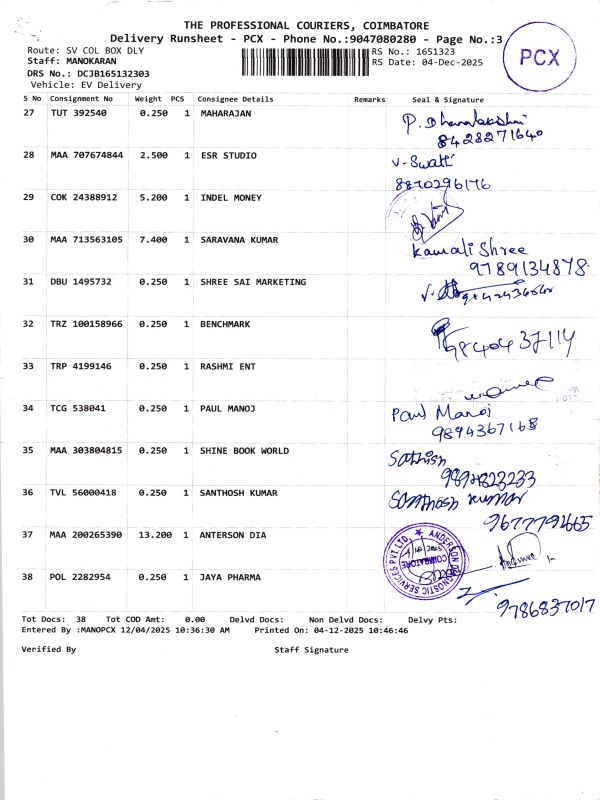 THE PROFESSIONAL COURIERS, COIMBATORE
Delivery Runsheet - PCX - Phone No.:9047080280 - Page No.:3
PCX
Route: SV COL BOX DLY
RS No.: 1651323
Staff: MANOKARAN
RS Date: 04-Dec-2025
DRS No.: DCJB165132303
Vehicle: EV Delivery
S No Consignment No Weight PCS Consignee Details Remarks Seal & Signature
27 TUT 392540 0.250 1 MAHARAJAN
P. Dhanalakshmi
8428271640
28 MAA 707674844 2.500 1 ESR STUDIO
V-Swati
8870296176
29 COK 24388912 5.200 1 INDEL MONEY
30 MAA 713563105 7.400 1 SARAVANA KUMAR
Kamali Shree
9789134878
31 DBU 1495732 0.250 1 SHREE SAI MARKETING
32 TRZ 100158966 0.250 1 BENCHMARK
33 TRP 4199146 0.250 1 RASHMI ENT
34 TCG 538041 0.250 1 PAUL MANOJ
Paul Manoj
9894367168
35 MAA 303804815 0.250 1 SHINE BOOK WORLD
Sathish
9894823233
36 TVL 56000418 0.250 1 SANTHOSH KUMAR
Santhosh Kumar
37 MAA 200265390 13.200 1 ANTERSON DIA
ANDERSON DIAGNOSTIC SERVICES PVT LTD.
COIMBATORE
38 POL 2282954 0.250 1 JAYA PHARMA
9786837017
Tot Docs: 38 Tot COD Amt: 0.00 Delvd Docs: Non Delvd Docs: Delvy Pts:
Entered By :MANOPCX 12/04/2025 10:36:30 AM Printed On: 04-12-2025 10:46:46
Verified By Staff Signature